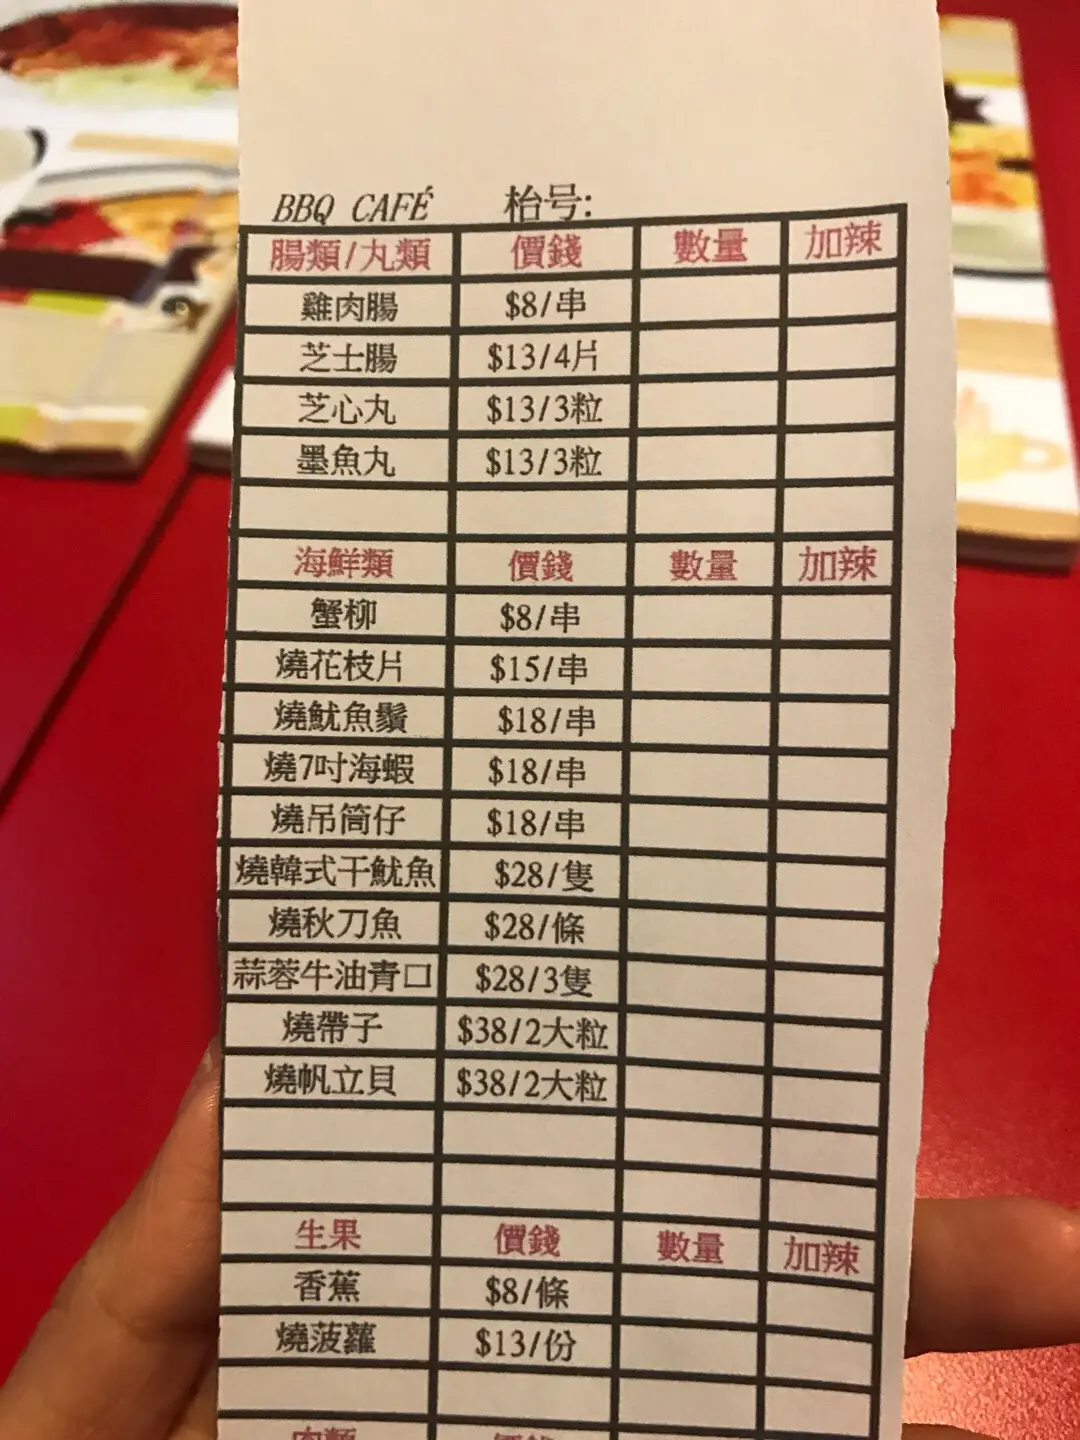 BBQ CAFÉ 枱号:
腸類/丸類 價錢 數量 加辣
雞肉腸 $8/串
芝士腸 $13/4片
芝心丸 $13/3粒
墨魚丸 $13/3粒
海鮮類 價錢 數量 加辣
蟹柳 $8/串
燒花枝片 $15/串
燒魷魚鬚 $18/串
燒7吋海蝦 $18/串
燒吊筒仔 $18/串
燒韓式干魷魚 $28/隻
燒秋刀魚 $28/條
蒜蓉牛油青口 $28/3隻
燒帶子 $38/2大粒
燒帆立貝 $38/2大粒
生果 價錢 數量 加辣
香蕉 $8/條
燒菠蘿 $13/份
肉類 價錢